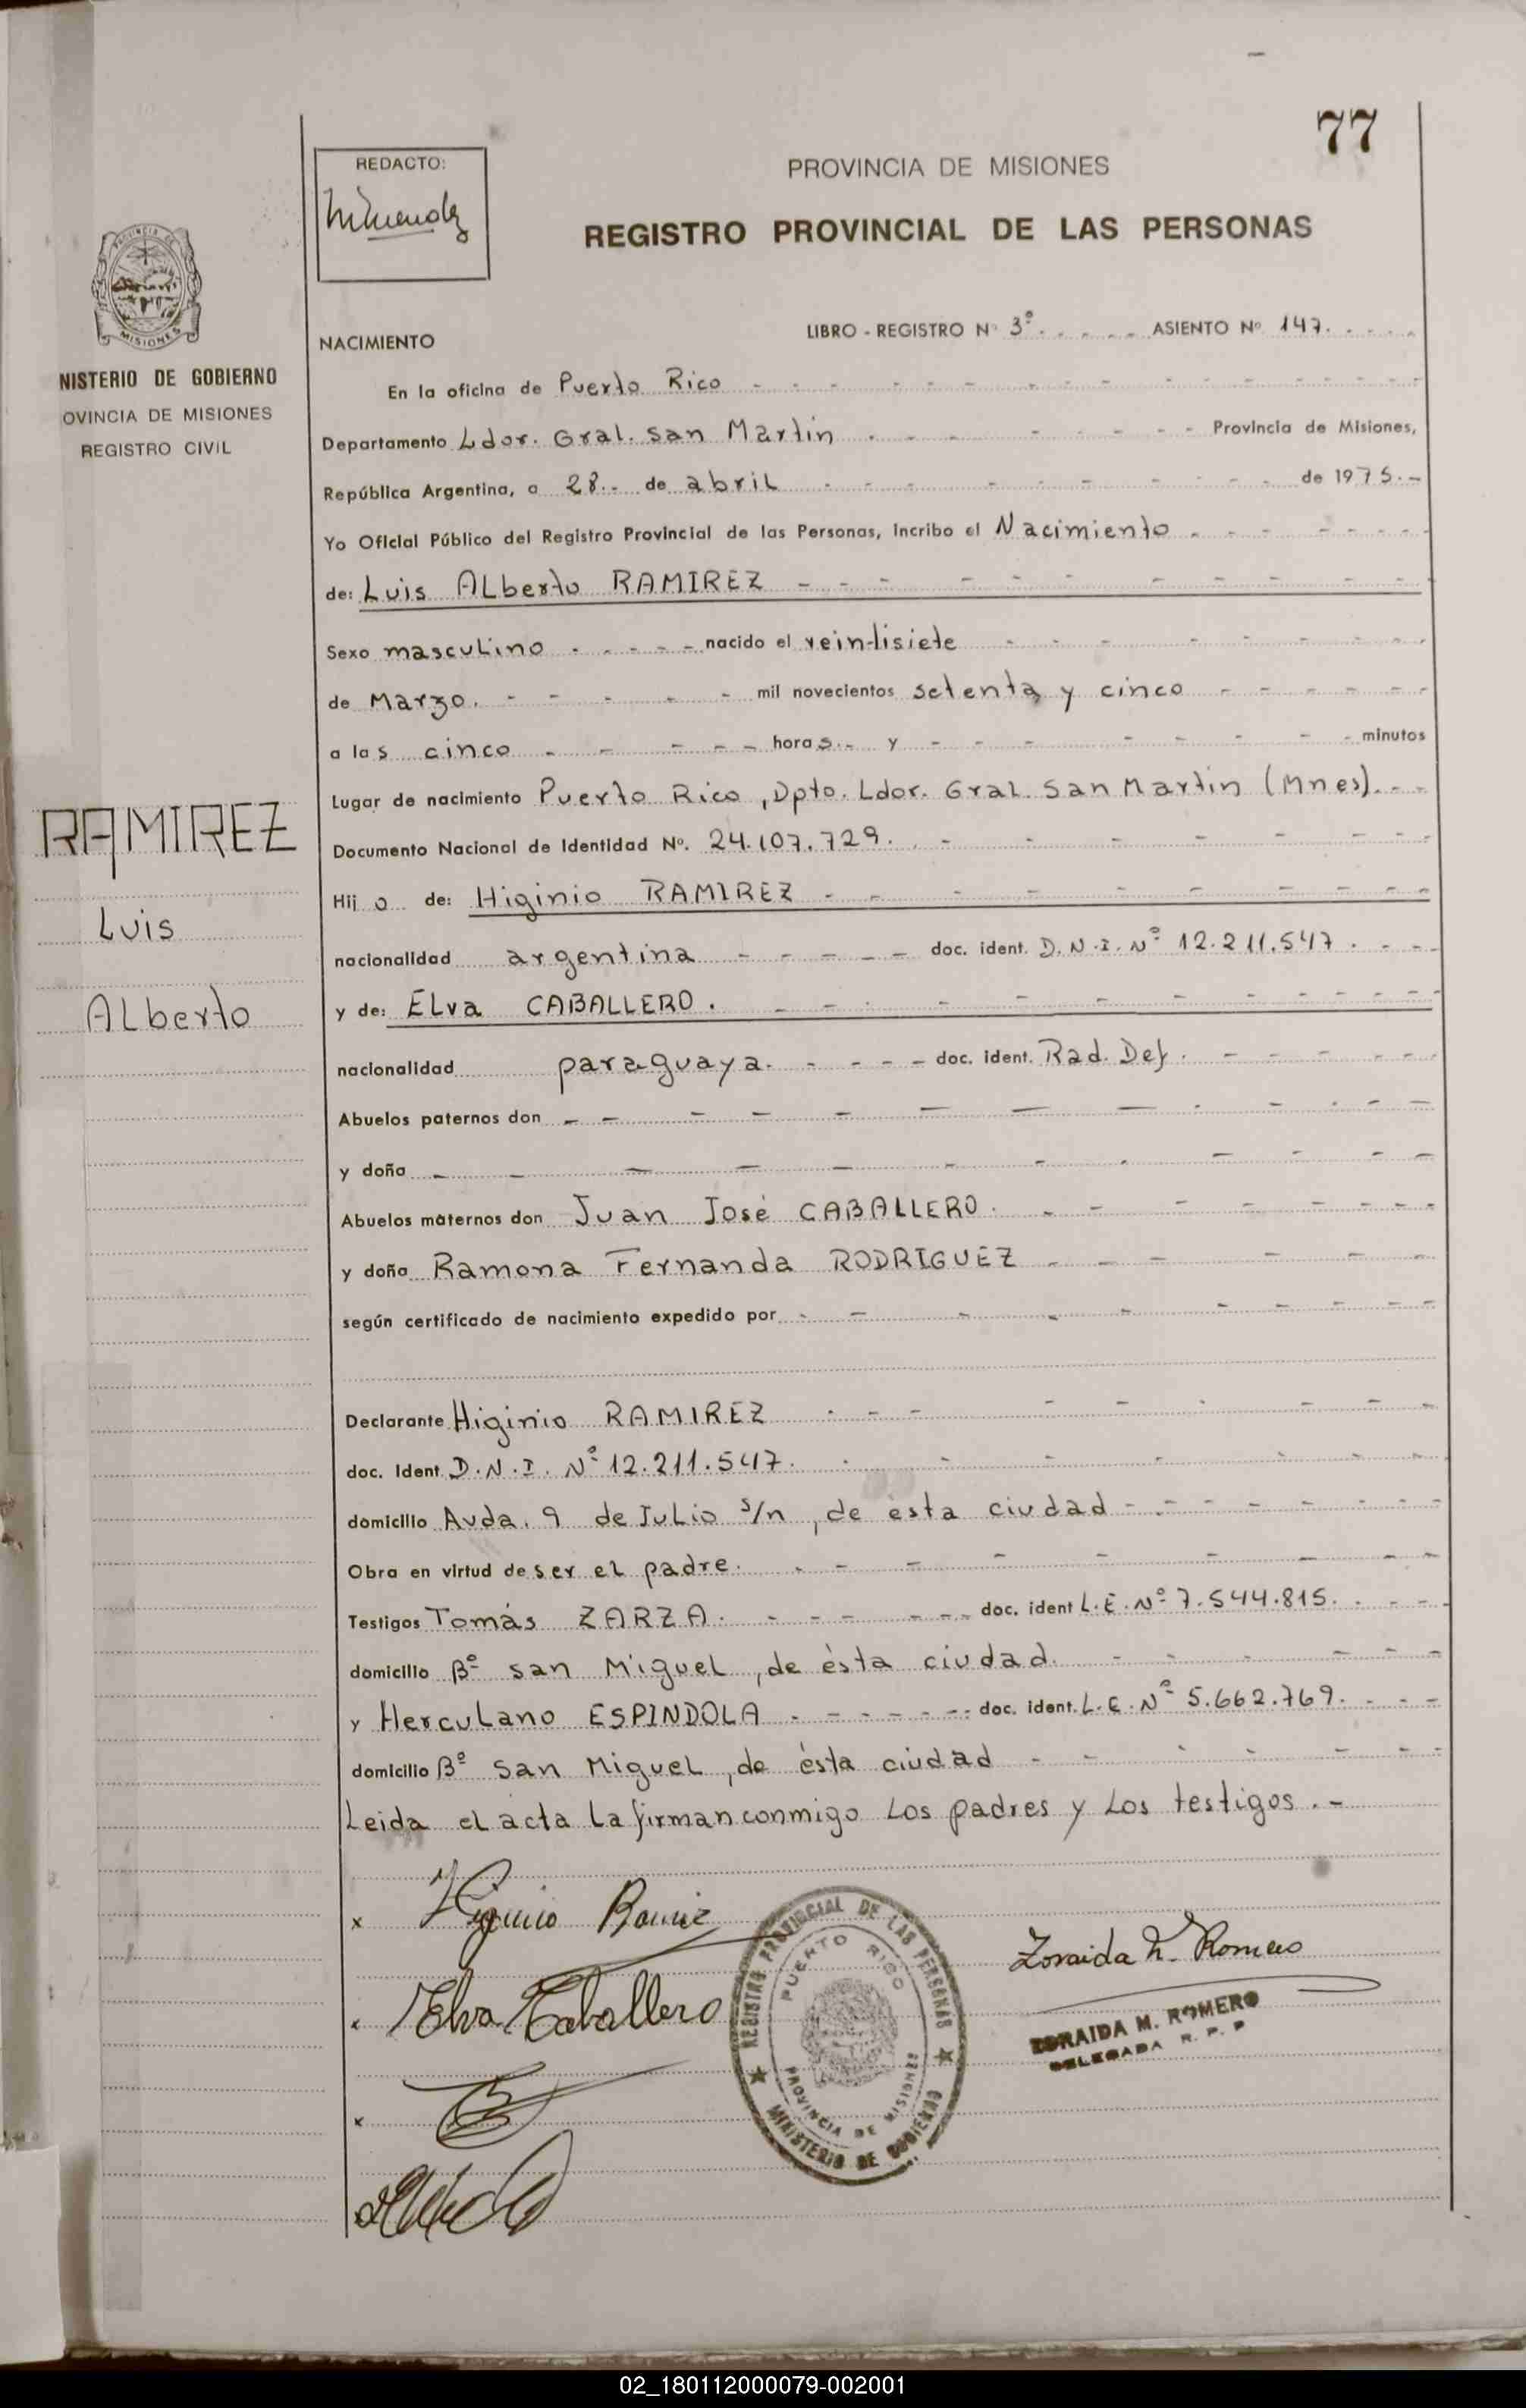 77
REDACTO:
PROVINCIA DE MISIONES
REGISTRO PROVINCIAL DE LAS PERSONAS
MISIONES
NISTERIO DE GOBIERNO
OVINCIA DE MISIONES
REGISTRO CIVIL
NACIMIENTO
LIBRO - REGISTRO Nº 3º. ASIENTO Nº 147.
En la oficina de Puerto Rico
Departamento Ldor. Gral. San Martín Provincia de Misiones,
República Argentina, a 28.- de abril de 1975.-
Yo Oficial Público del Registro Provincial de las Personas, incribo el Nacimiento
de: Luis Alberto RAMIREZ
Sexo masculino nacido el veintisiete
de Marzo. mil novecientos setenta y cinco
a las cinco horas.- y minutos
Lugar de nacimiento Puerto Rico, Dpto. Ldor. Gral. San Martín (Mnes).
Documento Nacional de Identidad Nº. 24.107.729.
Hijo de: Higinio RAMIREZ
nacionalidad argentina doc. ident. D.N.I. Nº 12.211.547.
y de: Elva CABALLERO.
nacionalidad paraguaya. doc. ident. Rad. Def.
Abuelos paternos don
y doña
Abuelos maternos don Juan José CABALLERO.
y doña Ramona Fernanda RODRIGUEZ
según certificado de nacimiento expedido por
Declarante Higinio RAMIREZ
doc. Ident. D.N.I. Nº 12.211.547.
domicilio Avda. 9 de Julio s/n, de ésta ciudad
Obra en virtud de ser el padre.
Testigos Tomás ZARZA. doc. ident L.E. Nº 7.544.815.
domicilio Bº San Miguel, de ésta ciudad.
y Herculano ESPINDOLA doc. ident. L.E. Nº 5.662.769.
domicilio Bº San Miguel, de ésta ciudad
Leida el acta la firman conmigo los padres y los testigos.-
RAMIREZ
Luis
Alberto
x Higinio Ramirez
Elva Caballero
Zoraida M. Romero
ZORAIDA M. ROMERO
DELEGADA R. P. P
REGISTRO PROVINCIAL DE LAS PERSONAS
PUERTO RICO
PROVINCIA DE MISIONES
MINISTERIO DE GOBIERNO
02_180112000079-002001